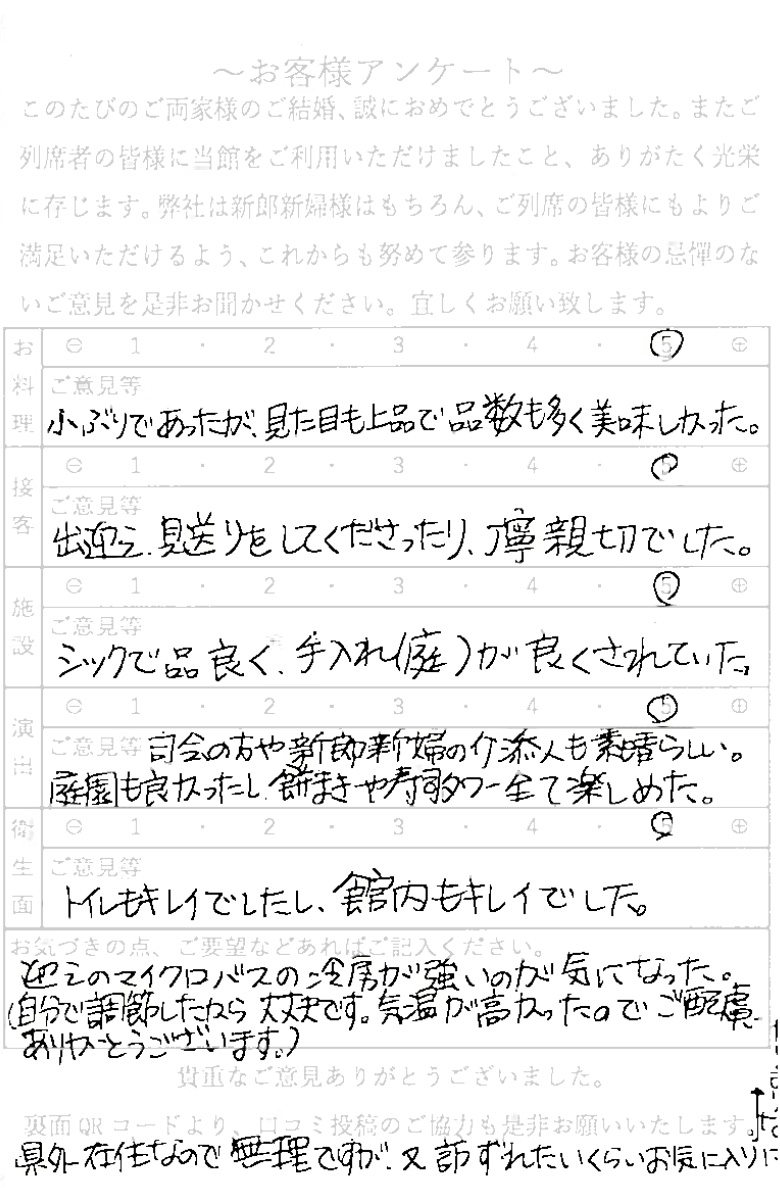 ～お客様アンケート～
このたびのご両家様のご結婚、誠におめでとうございました。またご
列席者の皆様に当館をご利用いただけましたこと、ありがたく光栄
に存じます。弊社は新郎新婦様はもちろん、ご列席の皆様にもよりご
満足いただけるよう、これからも努めて参ります。お客様の忌憚のな
いご意見を是非お聞かせください。宜しくお願い致します。
お料理 ⊖ 1 ・ 2 ・ 3 ・ 4 ・ 5 ⊕
ご意見等
小ぶりであったが、見た目も上品で品数も多く美味しかった。
接客 ⊖ 1 ・ 2 ・ 3 ・ 4 ・ 5 ⊕
ご意見等
出迎え、見送りをしてくださったり、丁寧親切でした。
施設 ⊖ 1 ・ 2 ・ 3 ・ 4 ・ 5 ⊕
ご意見等
シックで品良く、手入れ(庭)が良くされていた。
演出 ⊖ 1 ・ 2 ・ 3 ・ 4 ・ 5 ⊕
ご意見等 司会の方や新郎新婦の介添人も素晴らしい。
庭園も良かったし、餅まきや寿司タワー全て楽しめた。
衛生面 ⊖ 1 ・ 2 ・ 3 ・ 4 ・ 5 ⊕
ご意見等
トイレもキレイでしたし、館内もキレイでした。
お気づきの点、ご要望などあればご記入ください。
迎えのマイクロバスの冷房が強いのが気になった。
(自分で調節したから大丈夫です。気温が高かったのでご配慮
ありがとうございます。)
貴重なご意見ありがとうございました。
裏面QRコードより、口コミ投稿のご協力も是非お願いいたします。
県外在住なので無理ですが、又訪ずれたいくらいお気に入りに